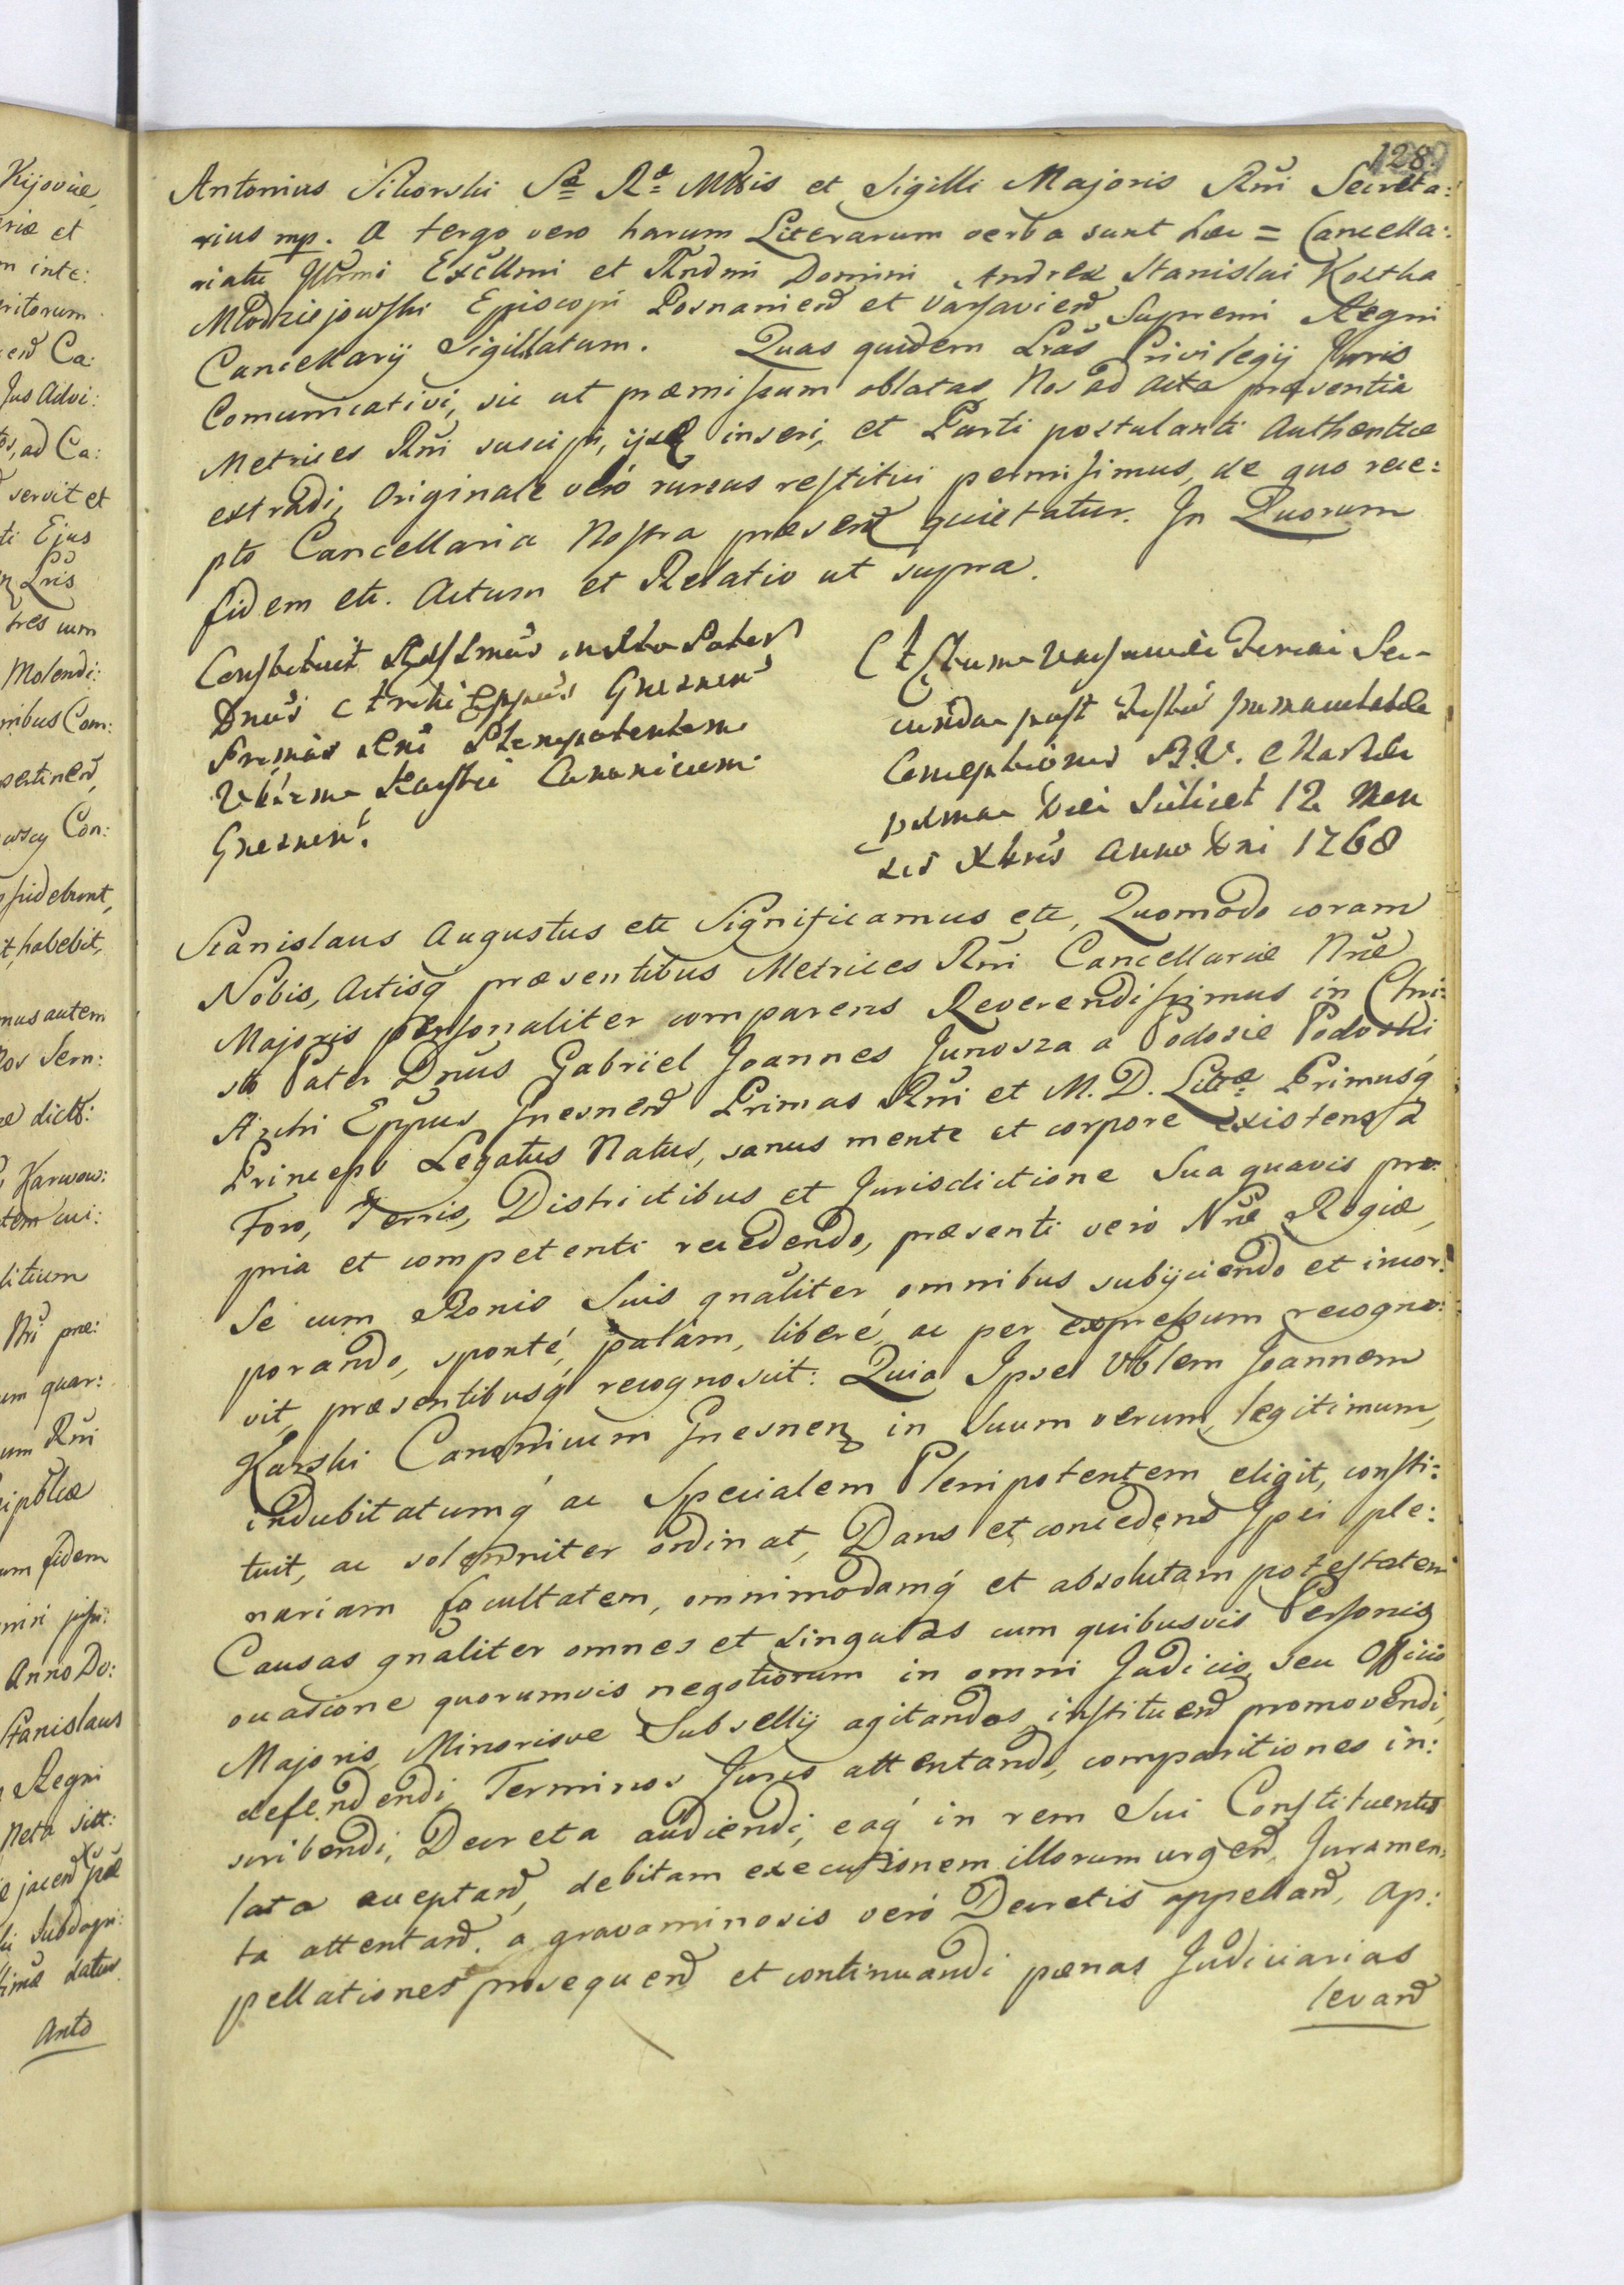 Kijoviæ,
riæ et
m inte:
ritorum
end Ca:
Jus Advi:
tos, ad Ca:
servit et
ti Ejus
Lr̃is
tres cum
Molendi:
nibus Com:
pertinend,
Con:
ssidebunt,
it, habebit,
mus autem
Nos Sern:
æ dict:
Karwow:
tem cui:
litium
Nr̃i præ:
um quar:
um Rñi
ipb̃licæ
um fidem
Anno Do:
Stanislaus
Regni
Meta sitt:
Anto
128
Antonius Sikorski Sæ Ræ Mttis et Sigilli Majoris Rñi Secreta:
rius mp. A tergo vero harum Literarum verba sunt hæc = Cancella:
riatu Jllrmi Excllmi et Rndmi Domini Andreæ Stanislai Kostka
Młodziejowski Episcopi Posnaniend et Varsaviend Supremi Regni
Cancellarij Sigillatum. Quas quidem Lr̃as Privilegij Juris
Comunicativi, sic ut præmissum oblatas, Nos ad Acta præsentia
Metrices Rñi suscipi, ijsq̃ inseri, et Parti postulanti Authentice
extradi, Originale veró rursus restitui permisimus, de quo rece:
pto Cancellaria Nostra præsend quietatur. In Quorum
fidem etc. Actum et Relatio ut supra.
Constituit Rdssimus in Xto Pater
Dnus Archi Eppus Gnesnen
Primas Rni Plenipotentem
Vblem Karski Canonicum
Gnesnen.
Actum Varsaviæ Feria Se-
cunda post Festum Immaculatæ
Conceptionis B.V. Mariæ
proxima Die Scilicet 12 Men
sis Xbris Anno Dni 1768
Stanislaus Augustus etc Significamus etc, Quomodo coram
Nobis, Actisq́ præsentibus Metrices Rñi Cancellariæ Nr̃æ
Majoris personaliter comparens Reverendissimus in Chri:
sto Pater Dnus Gabriel Joannes Junosza a Podosie Podoski
Archi Eppus Gnesnend Primas Rñi et M. D. Littæ Primusq́
Princeps Legatus Natus, sanus mente et corpore existens, a
Foro, Terris, Districtibus et Jurisdictione Sua quavis pro:
pria et competenti recedendo, præsenti veró Nr̃æ Regiæ,
Se cum Bonis Suis gnãliter omnibus subijciendo et incor:
porando, sponté, palám, liberé, ac per expressum recogno:
vit, præsentibusq́ recognoscit: Quia Ipse Vblem Joannem
Karski Canonicum Gnesnen in Suum verum, legitimum,
indubitatumq́ ac Specialem Plenipotentem eligit, consti:
tuit, ac solenniter ordinat, Dans et concedens Ipsi ple:
nariam facultatem, omnimodamq́ et absolutam potestatem
Causas gnãliter omnes et singulas cum quibusvis Personis
occasione quorumvis negotiorum in omni Judicio, seu Officio
Majoris, Minorisve Subsellij agitandas, instituend promovendi,
defendendi, Terminos Juris attentand, comparitiones in:
scribendi, Decreta audiendi, eaq́ in rem Sui Constituentis
lata acceptand, debitam executionem illorum urgend, Juramen:
ta attentand, a gravaminosis veró Decretis appelland, Ap:
pellationes prosequend et continuandi pœnas Judiciarias
levand